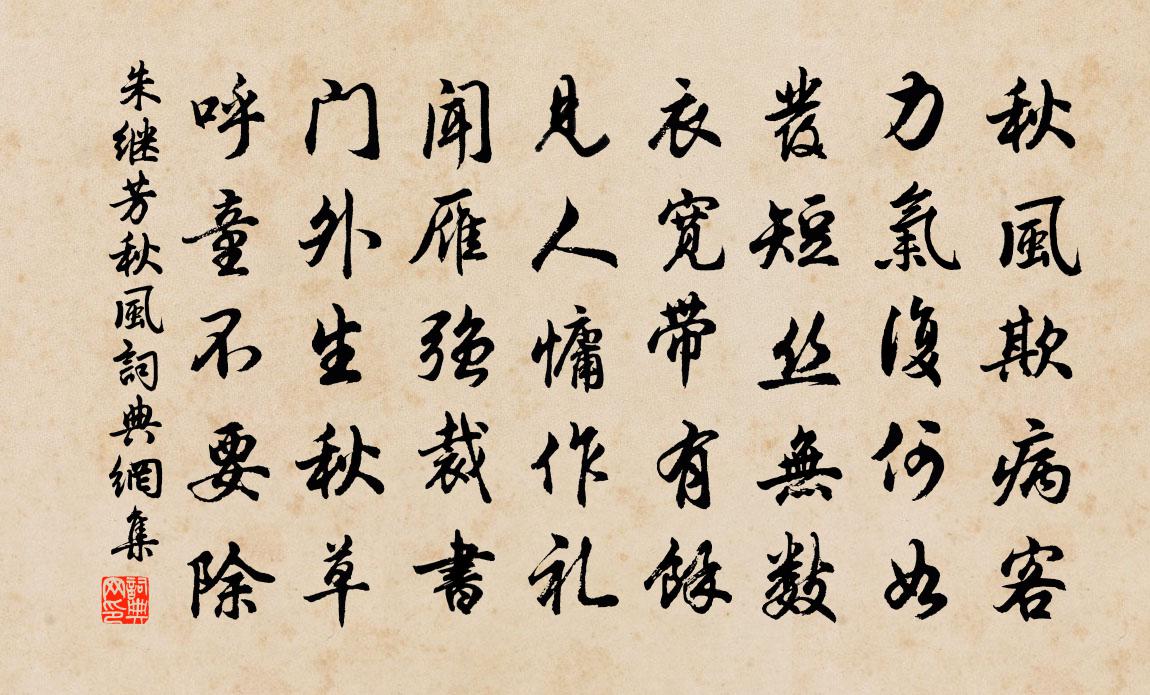 秋風欺病客
力氣復何如
發短丝無數
衣寬带有餘
見人慵作礼
聞雁强裁書
门外生秋草
呼童不要除
朱继芳秋風詞典網集
詞典
网印